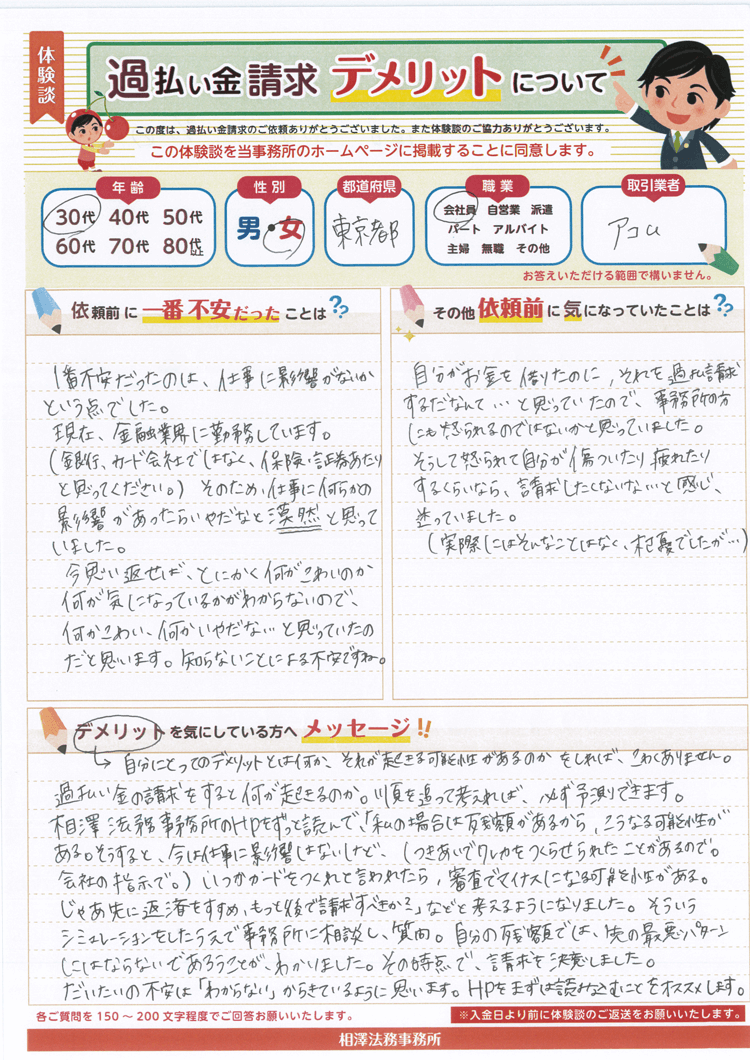 体験談
過払い金請求 デメリットについて
この度は、過払い金請求のご依頼ありがとうございました。また体験談のご協力ありがとうございます。
この体験談を当事務所のホームページに掲載することに同意します。
年齢
性別
都道府県
職業
取引業者
30代 40代 50代
60代 70代 80代以上
男・女
東京都
会社員 自営業 派遣
パート アルバイト
主婦 無職 その他
アコム
お答えいただける範囲で構いません。
依頼前に一番不安だったことは??
1番不安だったのは、仕事に影響がないか
という点でした。
現在、金融業界に勤務しています。
(銀行、カード会社ではなく、保険・証券あたり
と思ってください。) そのため、仕事に何らかの
影響があったらいやだなと漠然と思って
いました。
今思い返せば、とにかく何がこわいのか
何が気になっているかがわからないので、
何かこわい、何かいやだな…と思っていたの
だと思います。知らないことによる不安ですね。
その他依頼前に気になっていたことは??
自分がお金を借りたのに、それを過払請求
するだなんて…と思っていたので、事務所の方
にも怒られるのではないかと思っていました。
そうして怒られて自分が傷ついたり疲れたり
するくらいなら、請求したくないな…と感じ、
迷っていました。
(実際にはそんなことはなく、杞憂でしたが…)
デメリットを気にしている方へメッセージ!!
→ 自分にとってのデメリットとは何か、それが起きる可能性があるのかをしれば、こわくありません。
過払い金の請求をすると何が起きるのか。順を追って考えれば、必ず予測できます。
相澤法務事務所のHPをずっと読んで、「私の場合は残額があるから、こうなる可能性が
ある。そうすると、今は仕事に影響はないけど、(つきあいでクレカをつくらせられたことがあるので。
会社の指示で。) いつかカードをつくれと言われたら、審査でマイナスになる可能性がある。
じゃあ先に返済をすすめ、もっと後で請求すべきか?」などと考えるようになりました。そういう
シミュレーションをしたうえで事務所に相談し、質問。自分の残額では、先の最悪パターン
にはならないであろうことが、わかりました。その時点で、請求を決意しました。
だいたいの不安は「わからない」からきているように思います。HPをまずは読み込むことをオススメします。
各ご質問を150〜200文字程度でご回答お願いいたします。
※入金日より前に体験談のご返送をお願いいたします。
相澤法務事務所